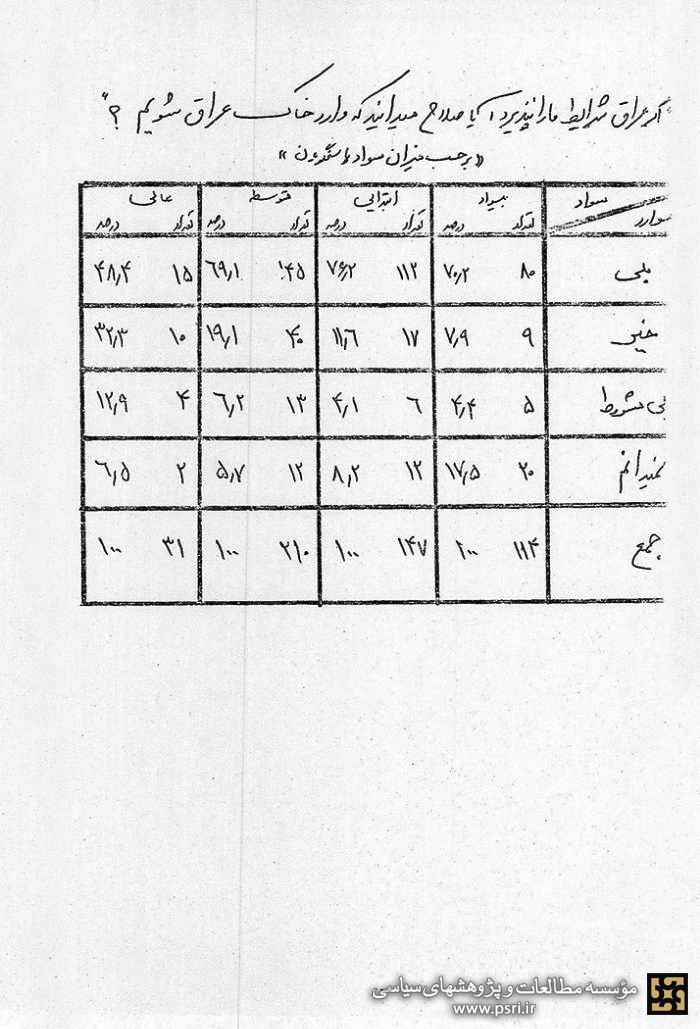 "اگر عراق شرایط ما را نپذیرد، آیا صلاح میدانید که وارد خاک عراق شویم ؟"
«برحسب میزان سواد پاسخگویان»
سواد بیسواد ابتدایی متوسط عالی
موارد تعداد درصد تعداد درصد تعداد درصد تعداد درصد
بلی ۸۰ ۷۰٫۲ ۱۱۲ ۷۶٫۲ ۱۴۵ ۶۹٫۱ ۱۵ ۴۸٫۴
خیر ۹ ۷٫۹ ۱۷ ۱۱٫۶ ۴۰ ۱۹٫۱ ۱۰ ۳۲٫۳
بلی مشروط ۵ ۴٫۴ ۶ ۴٫۱ ۱۳ ۶٫۲ ۴ ۱۲٫۹
نمیدانم ۲۰ ۱۷٫۵ ۱۲ ۸٫۲ ۱۲ ۵٫۷ ۲ ۶٫۵
جمع ۱۱۴ ۱۰۰ ۱۴۷ ۱۰۰ ۲۱۰ ۱۰۰ ۳۱ ۱۰۰
مؤسسه مطالعات و پژوهشهای سیاسی
www.psri.ir